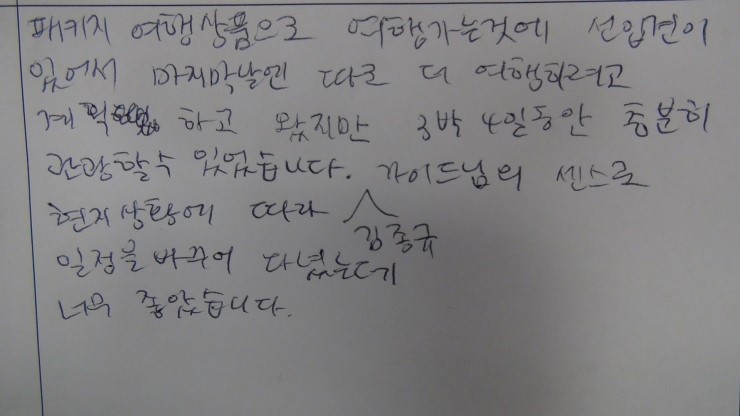 패키지 여행상품으로 여행가는것에 선입견이
있어서 마지막날엔 따로 더 여행하려고
계획 하고 왔지만 3박 4일동안 충분히
관광할수 있었습니다. 가이드님의 센스로
현지상황에 따라
김종규
일정을 바꾸어 다녔는데
너무 좋았습니다.